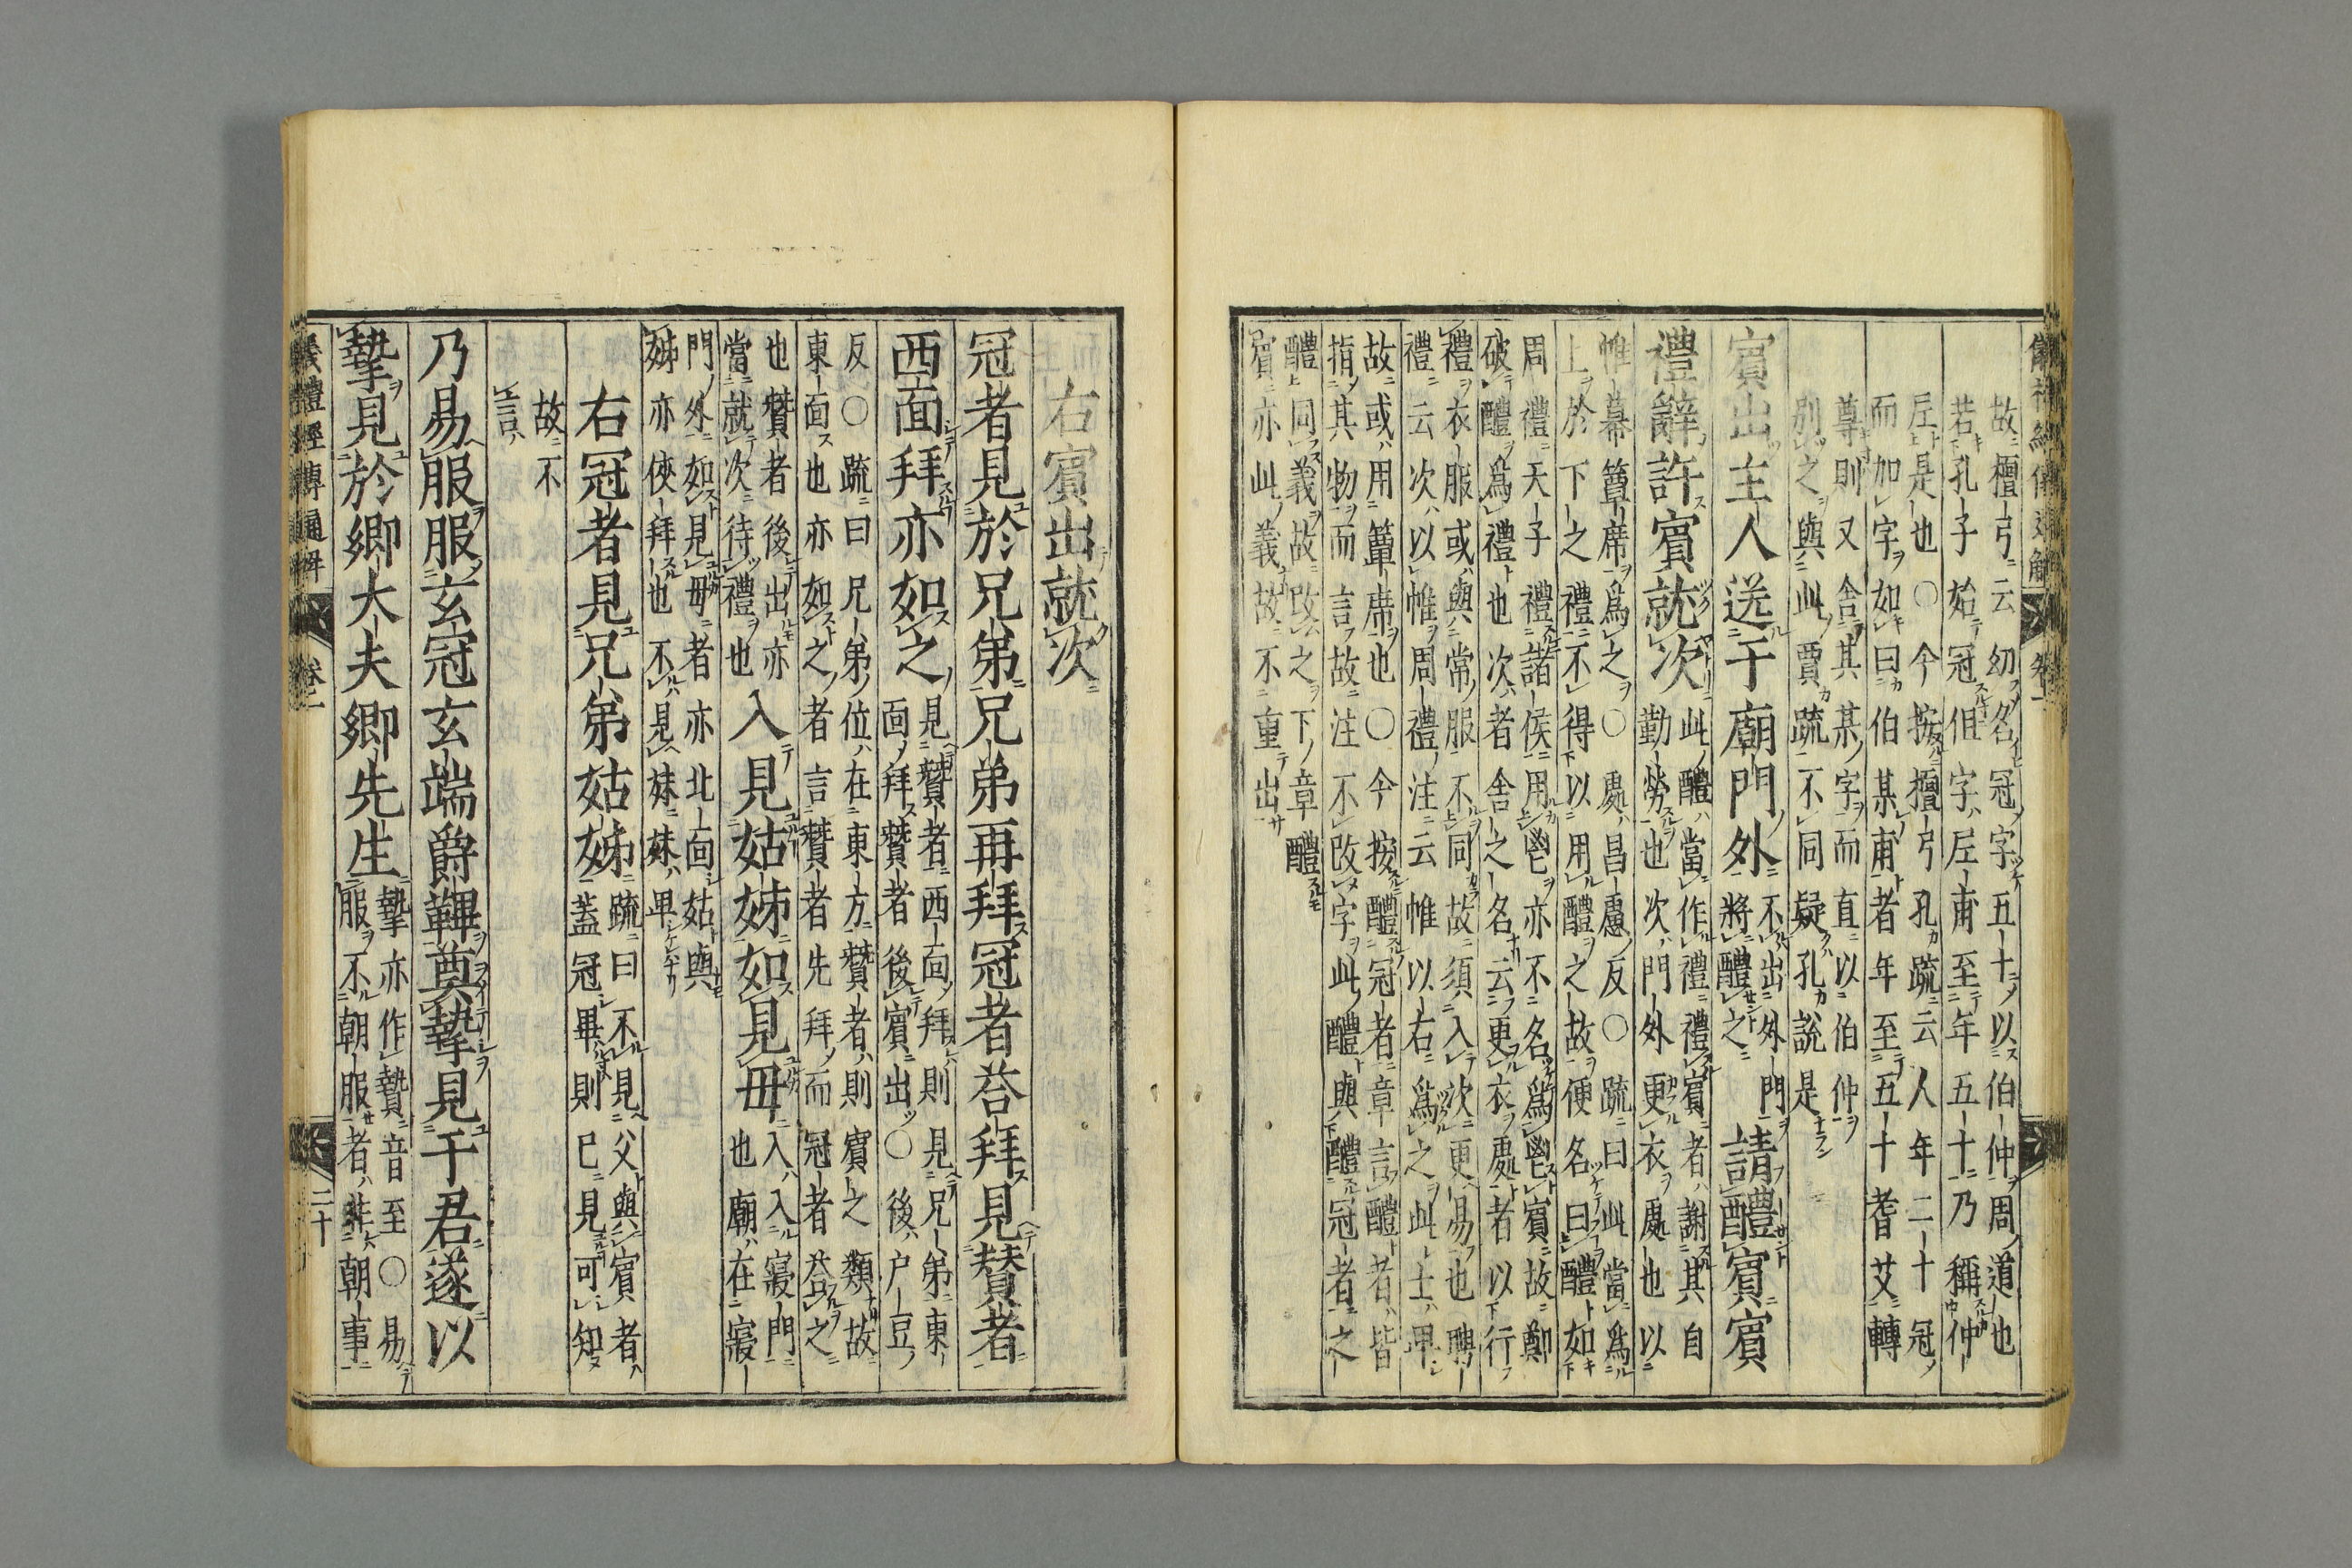 故檀弓云幼名冠字五十以伯仲周道也
若孔子始冠但字尼甫至年五十乃稱仲
尼是也○今按檀弓孔疏云人年二十冠
而加字如曰伯某甫者年至五十耆艾轉
尊則又舍其某字而直以伯仲
別之與此賈疏不同疑孔說是
賓出主人送于廟門外
不出外門
將醴之
請醴賓賓
禮辭許賓就次
此醴當作禮禮賓者謝其自
勤勞也次門外更衣處也以
帷幕簟席爲之○處昌慮反○疏曰此當爲
上於下之禮不得以用醴之故便名曰醴如
周禮天子禮諸侯用鬯亦不名爲鬯賓故鄭
破醴爲禮也次者舍之名云更衣處者以行
禮衣服或與常服不同故須入次更易也聘
禮云次以帷周禮注云帷以右爲之此士卑
故或用簟席也○今按醴冠者章言醴者皆
指其物而言故注不改字此醴與醴冠者之
醴同義故改之下章醴
賓亦此義故不重出
右賓出就次
冠者見於兄弟兄弟再拜冠者荅拜見贊者
西面拜亦如之
見贊者西面拜則見兄弟東
面拜贊者後賓出○後户豆
反○疏曰兄弟位在東方贊者則賓之類故
東面也亦如之者言贊者先拜而冠者荅之
也贊者後出亦
當就次待禮也
入見姑姊如見母
入入寢門
也廟在寢
門外如見母者亦北面姑與
姊亦俠拜也不見妹妹卑
右冠者見兄弟姑姊
疏曰不見父與賓者
蓋冠畢則已見可知
故不
言
乃易服服玄冠玄端爵韠奠摯見于君遂以
摯見於鄉大夫鄉先生
摯亦作贄音至○易
服不朝服者非朝事
儀禮經傳通解
卷一
二十